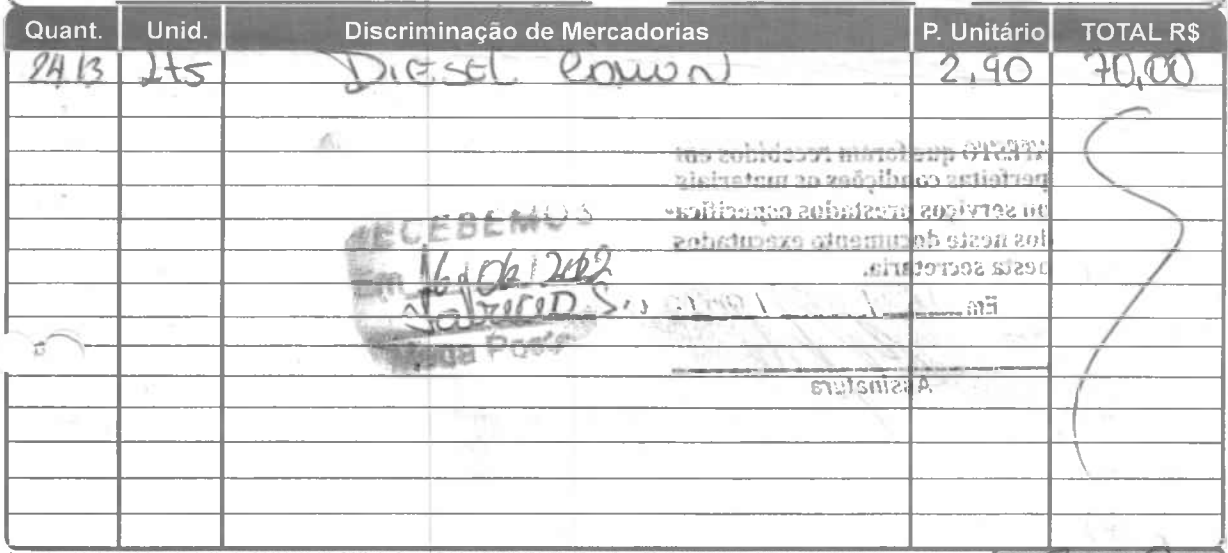 Quant. Unid. Discriminação de Mercadorias P. Unitário TOTAL R$
24,13 Lts DIESEL COMUM 2,90 70,00
ATESTO que foram recebidos em
perfeitas condições os materiais
ou serviços prestados especifica-
dos neste documento executados
nesta secretaria.
RECEBEMOS
Em 16/06/2012
Em
Posto
Assinatura